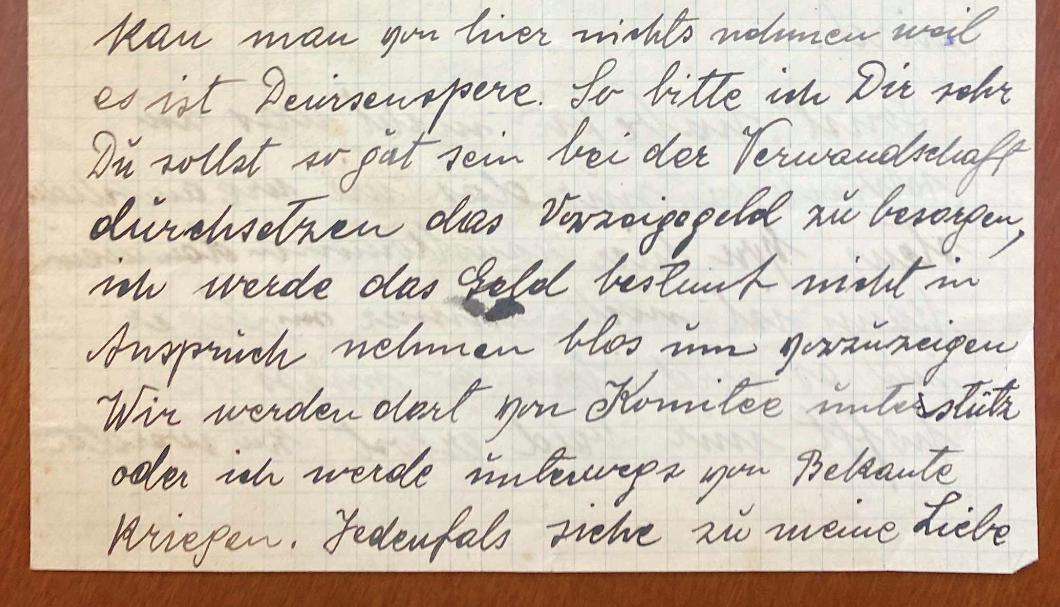 kan man von hier nichts nehmen weil
es ist Deiwsenspere. So bitte ich Dir sehr
Dŭ sollst so gŭt sein bei der Verwandschaft
dŭrchsetzen das Vorzeigegeld zŭ besorgen,
ich werde das Geld bestimt nicht in
Ansprŭch nehmen blos ŭm vorzŭzeigen
Wir werden dort von Komitee ŭnterstütz
oder ich werde ŭnterwegs von Bekante
Kriegen. Jedenfals siehe zŭ meine Liebe